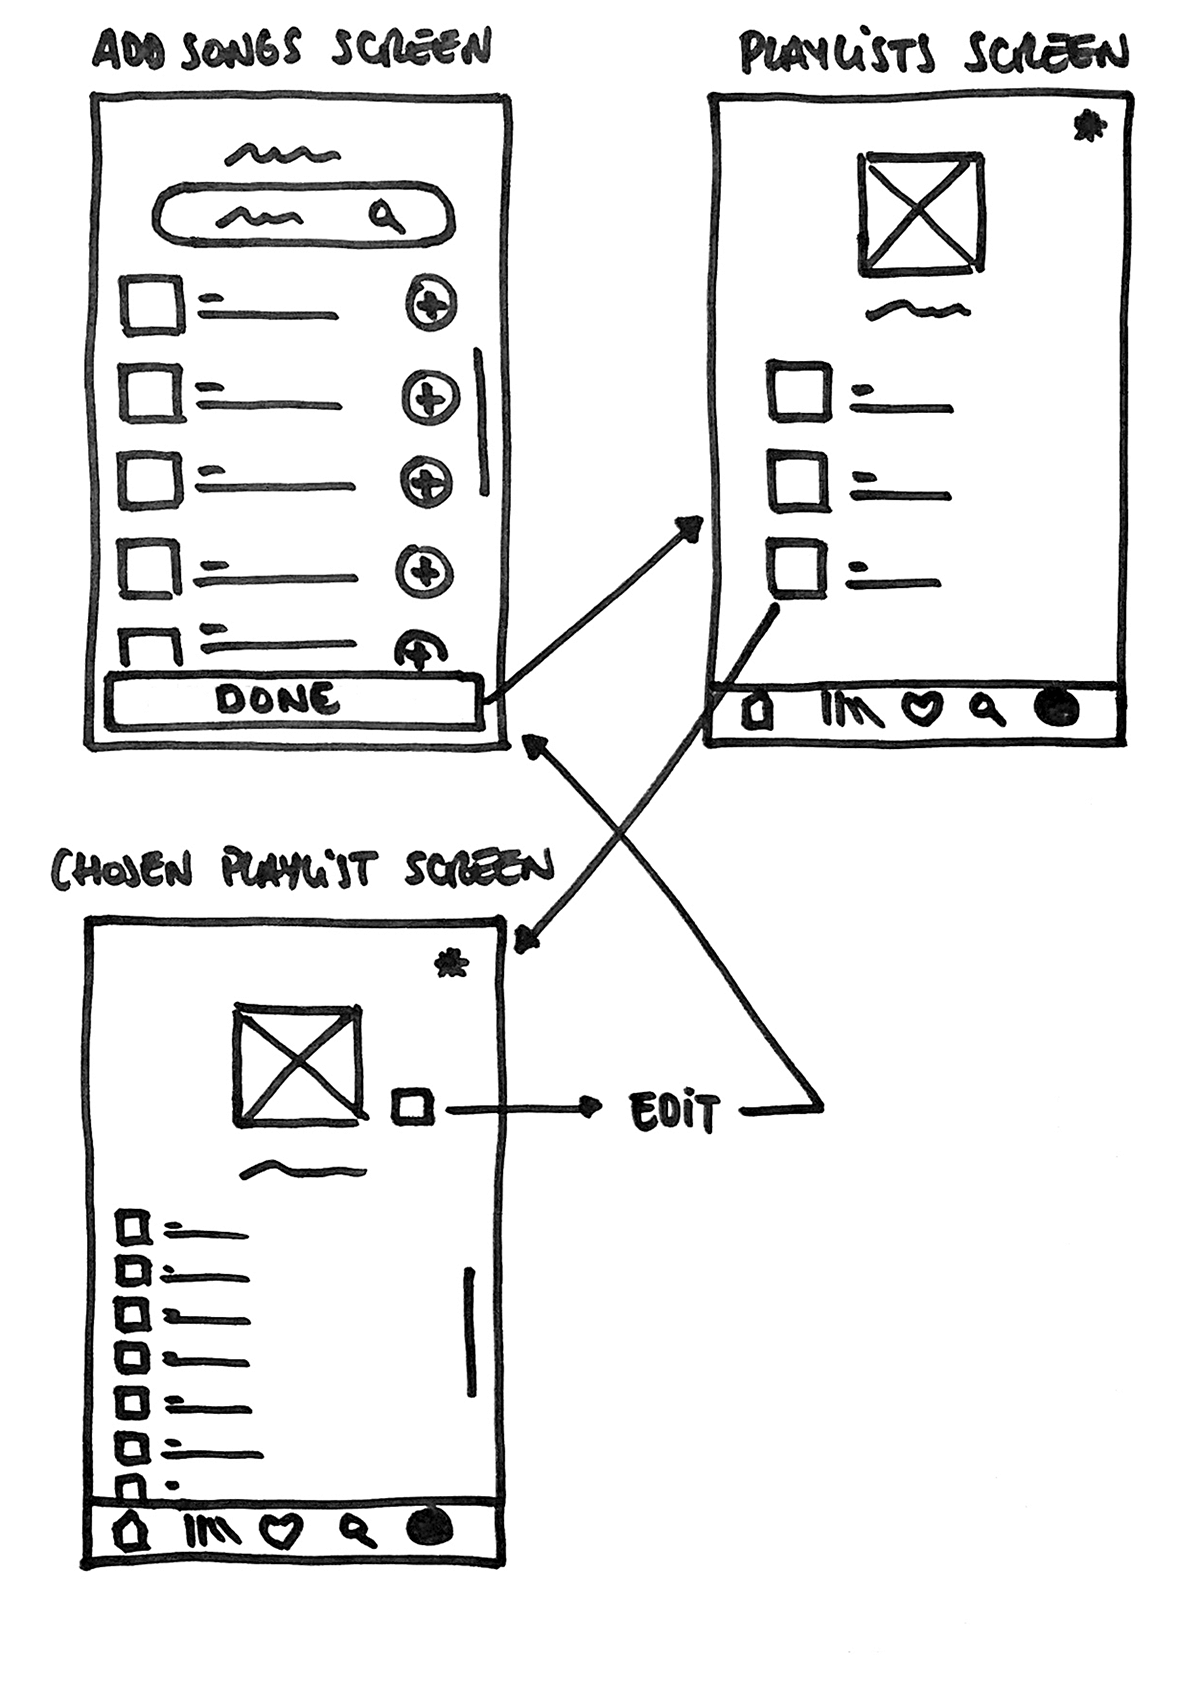 ADD SONGS SCREEN
PLAYLISTS SCREEN
DONE
CHOSEN PLAYLIST SCREEN
EDIT